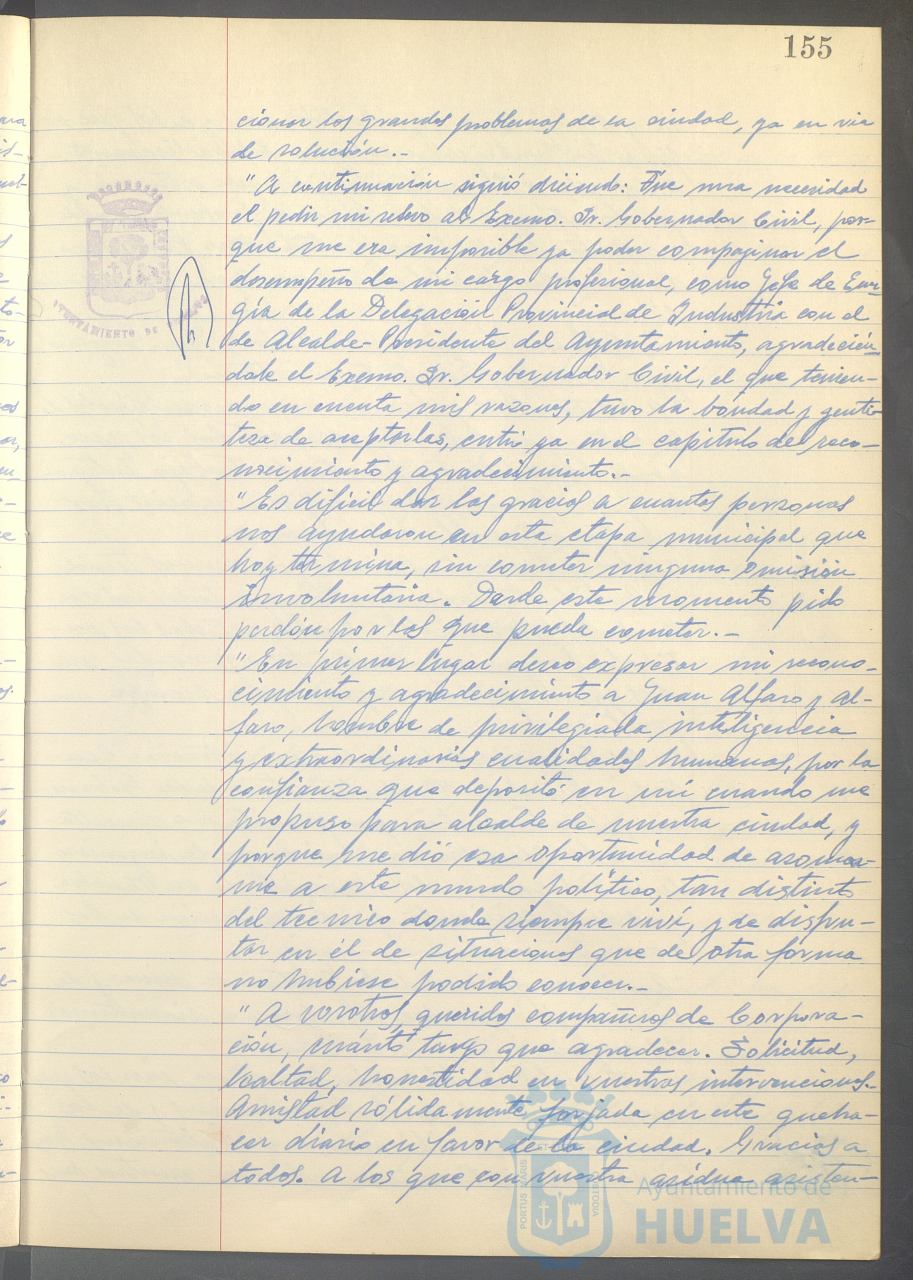 155
cionar los grandes problemas de la ciudad, ya en via
de solución.-
"A continuación siguió diciendo: Fue una necesidad
el pedir mi relevo al Excmo. Sr. Gobernador Civil, por-
que me era imposible ya poder compaginar el
desempeño de mi cargo profesional, como Jefe de Ener-
gía de la Delegación Provincial de Industria con el
de Alcalde-Presidente del Ayuntamiento, agradecién-
dole el Excmo. Sr. Gobernador Civil, el que tenien-
do en cuenta mis razones, tuvo la bondad y genti-
leza de aceptarlas, entri ya en el capitulo de reco-
nocimiento y agradecimiento.-
"Es dificil dar las gracias a cuantas personas
nos ayudaron en esta etapa municipal que
hoy termina, sin cometer ninguna omisión
involuntaria. Desde este momento pido
perdón por las que pueda cometer.-
"En primer lugar deseo expresar mi recono-
cimiento y agradecimiento a Juan Alfaro y Al-
faro, hombre de privilegiada inteligencia
y extraordinarias cualidades humanas, por la
confianza que depositó en mi cuando me
propuso para alcalde de nuestra ciudad, y
porque me dió esa oportunidad de asomar-
me a este mundo político, tan distinto
del tecnico donde siempre viví, y de disfru-
tar en él de situaciones que de otra forma
no hubiese podido conocer.-
"A vosotros, queridos compañeros de Corpora-
ción, cuánto tengo que agradecer. Solicitud,
lealtad, honestidad en vuestras intervenciones.-
Amistad sólidamente forjada en este queha-
cer diario en favor de la ciudad. Gracias a
todos. A los que con vuestra asidua asisten-
AYUNTAMIENTO DE HUELVA
PORTUS MARIS
CUSTODIA
Ayuntamiento de
HUELVA